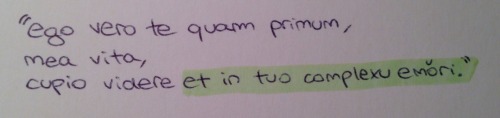 "ego vero te quam primum,
mea vita,
cupio videre et in tuo complexu emŏri."